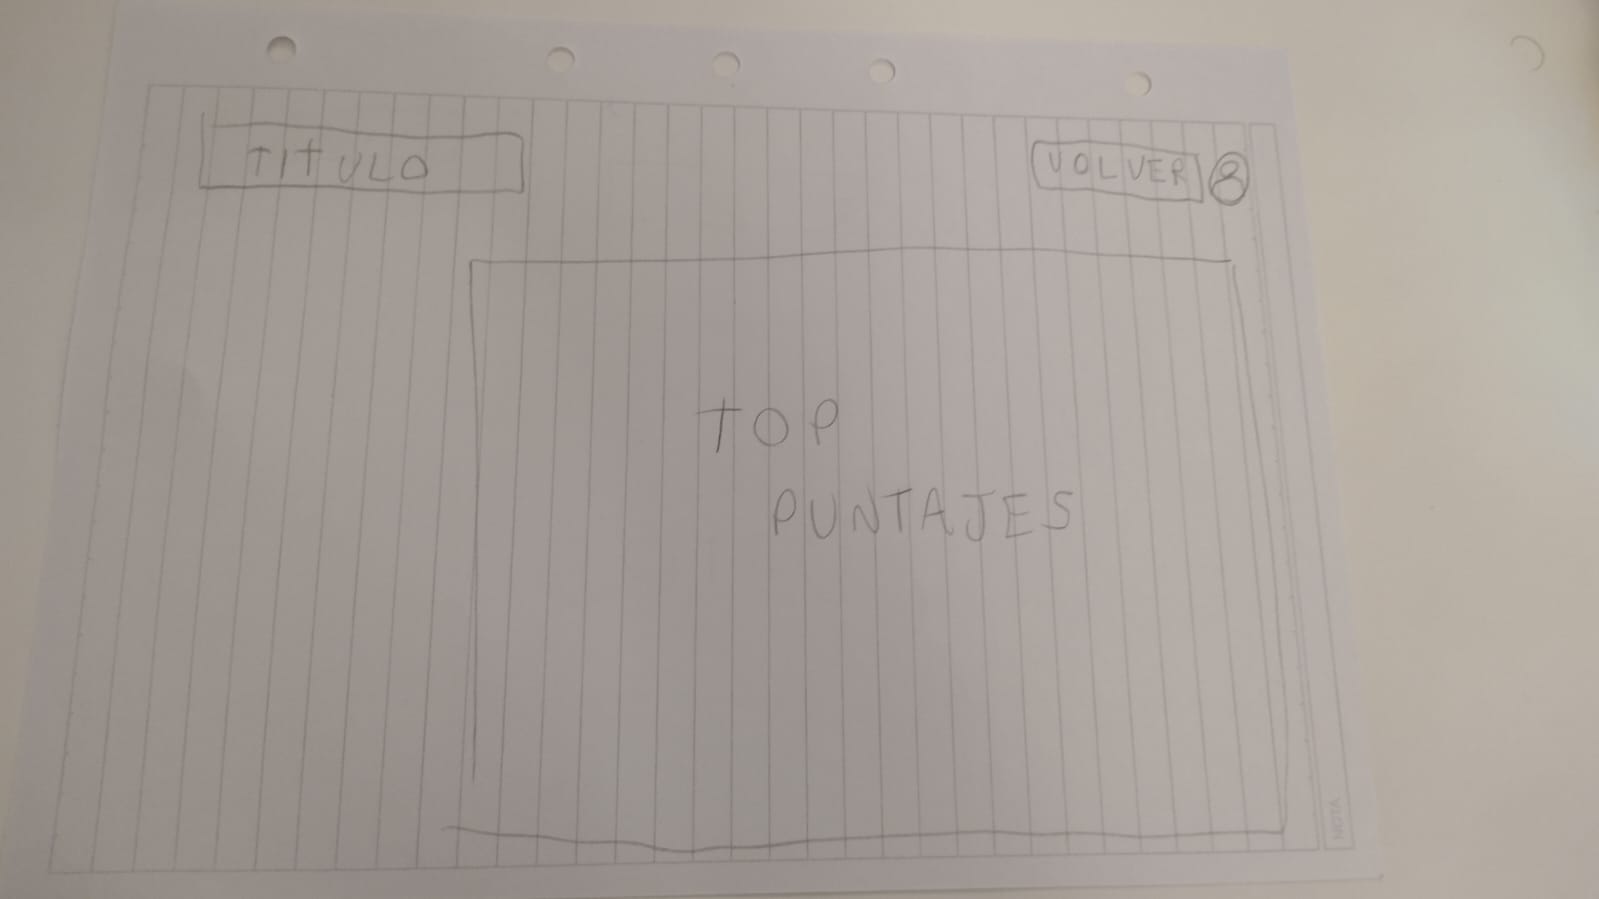 TITULO
VOLVER
TOP
PUNTAJES
NOTA